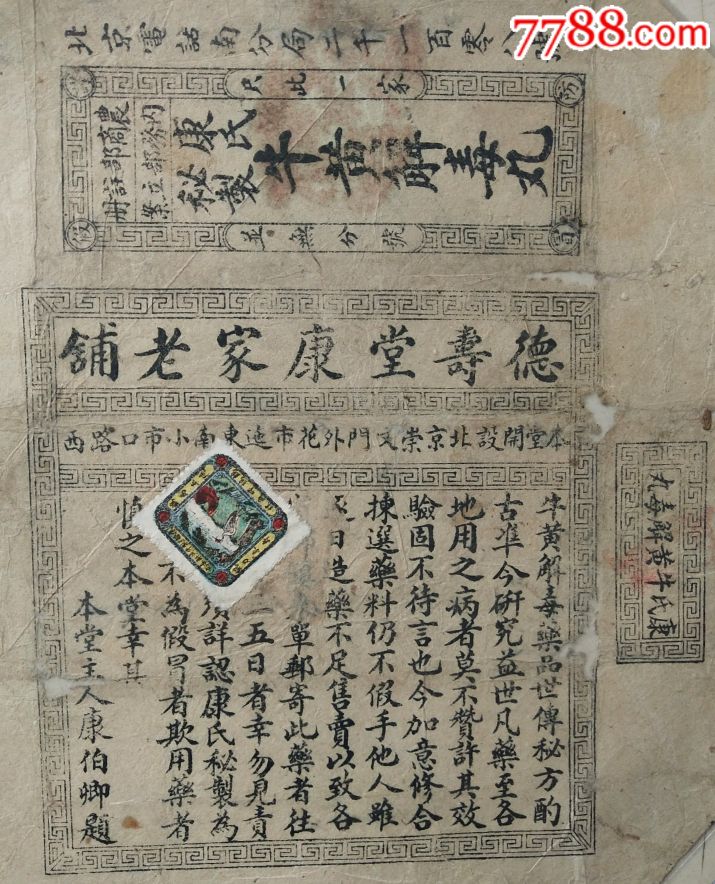 7788.com
北京電話南分局二千一百零八號
只此一家
農商部註冊
內務部立案
康氏秘製
牛黃解毒丸
並無分號
防
假
冒
德壽堂康家老舖
本堂開設北京崇文門外花市迤東南小市口路西
牛黃解毒藥品世傳秘方酌
古準今研究益世凡藥至各
地用之病者莫不贊許其效
驗固不待言也今加意修合
揀選藥料仍不假手他人雖
日造藥不足售賣以致各
單郵寄此藥者往
五日者幸勿見責
須詳認康氏秘製為
不為假冒者欺用藥者
慎之本堂幸甚
本堂主人康伯卿題
康氏牛黃解毒丸